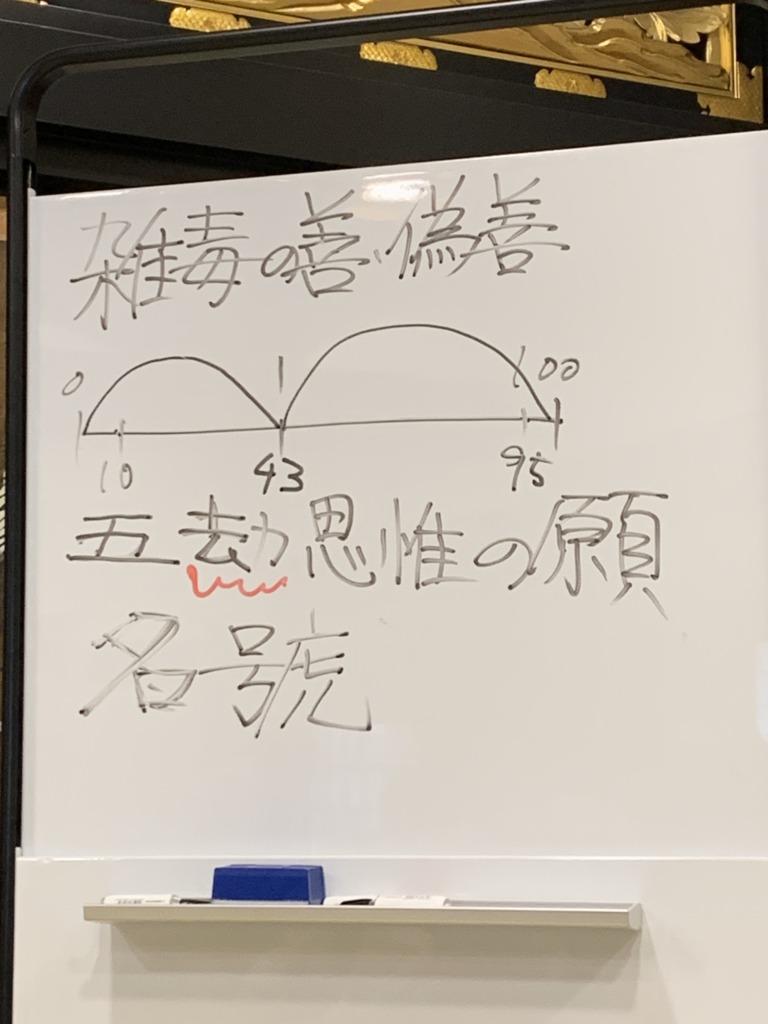 雑毒の善・偽善
0 100
10 43 95
五劫思惟の願
名號